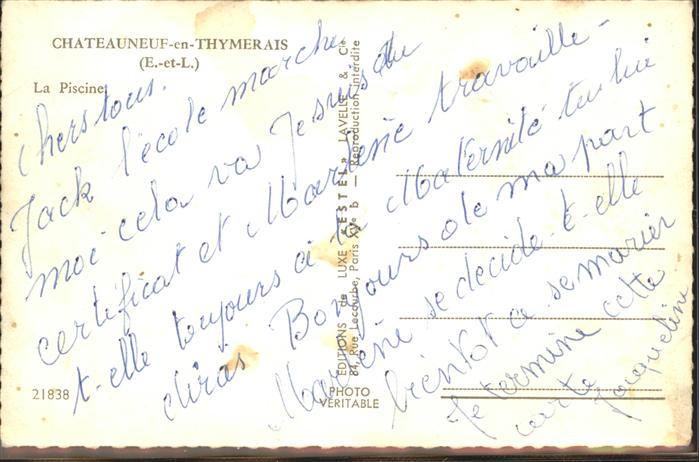 CHATEAUNEUF-en-THYMERAIS
(E.-et-L.)
La Piscine
chers tous.
Jack l'école marche
moi cela va Je suis au
certificat et Marlène travaille-
t-elle toujours à la Maternité tu lui
diras Bonjours de ma part
Marlène se décide-t-elle
bientôt a se marier
Je termine cette
carte
Jacqueline
21838
EDITIONS de LUXE « ESTEL » LAVELLE & Cie
84, Rue Lecourbe, Paris XVe b — Reproduction interdite
PHOTO
VÉRITABLE